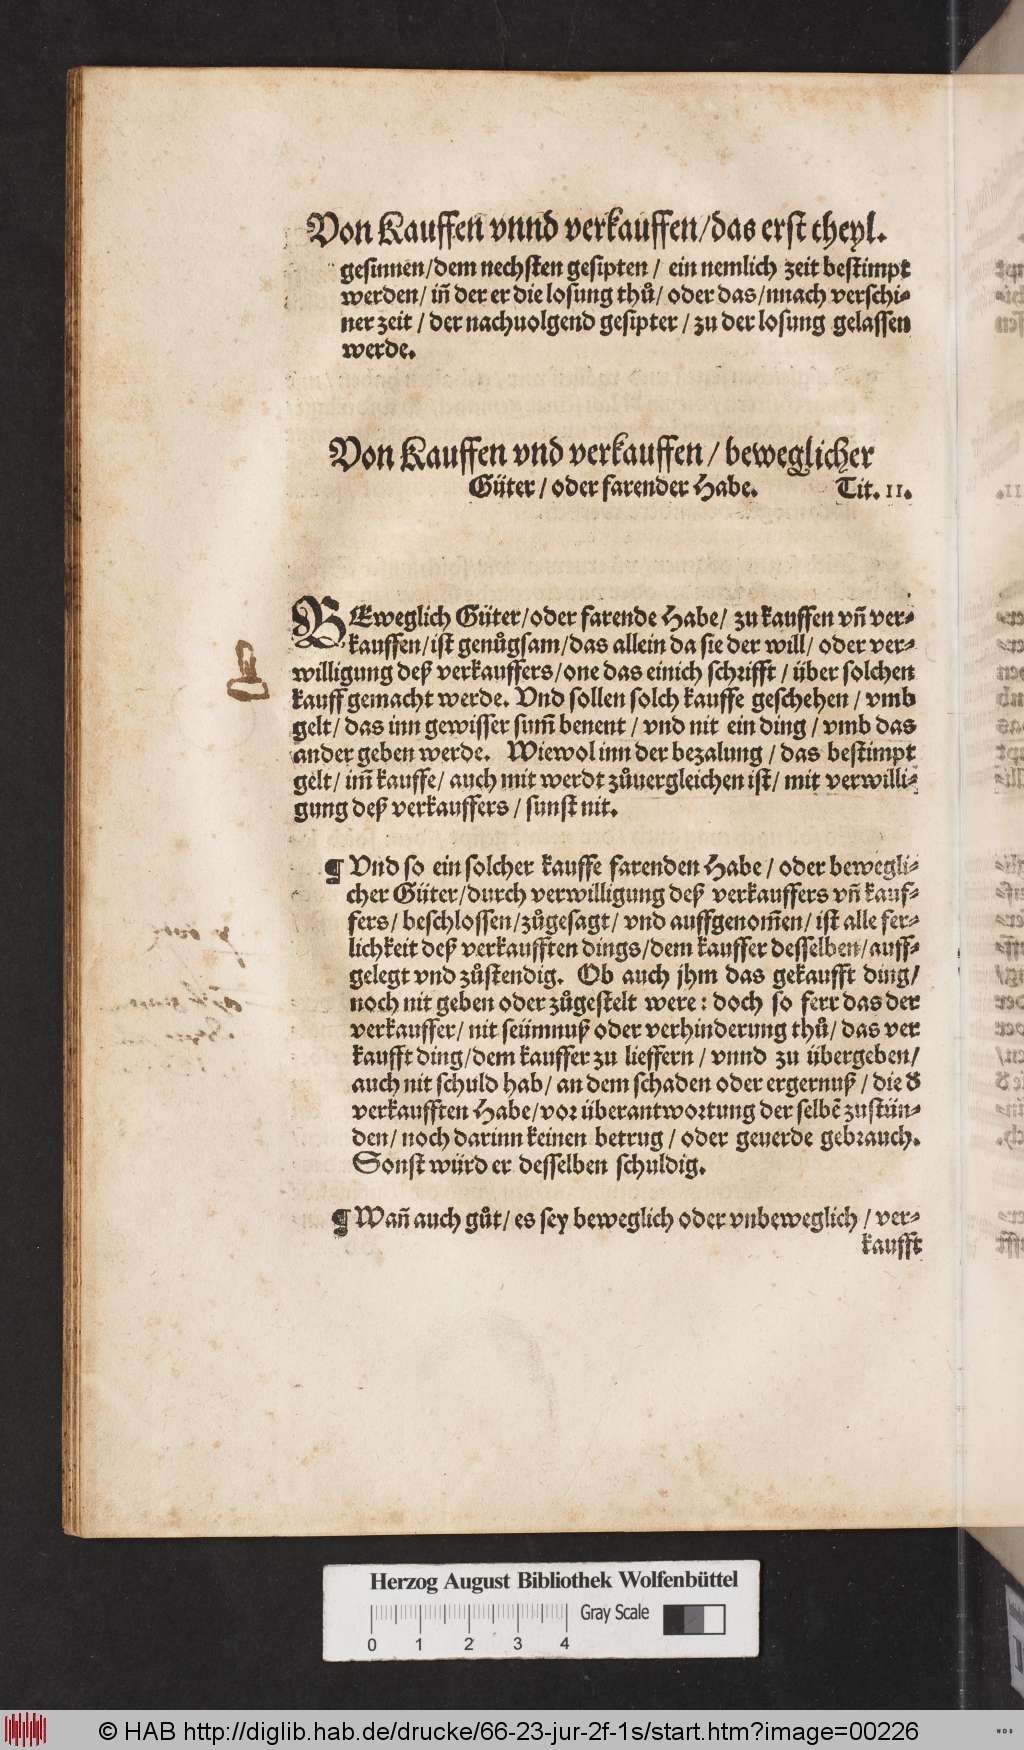 Von Kauffen vnnd verkauffen/das erst theyl.
gesinnen/dem nechsten gesipten / ein nemlich zeit bestimpt
werden/ iñ der er die losung thů/ oder das/nnach verschi⸗
ner zeit / der nachuolgend gesipter / zu der losung gelassen
werde.
Von Kauffen vnd verkauffen / beweglicher
Güter / oder farender Habe. Tit. II.
BEweglich Güter/oder farende Habe/ zu kauffen vñ ver⸗
kauffen/ist genůgsam/das allein da sie der will/ oder ver⸗
willigung deß verkauffers/one das einich schrifft / über solchen
kauff gemacht werde. Vnd sollen solch kauffe geschehen / vmb
gelt/ das inn gewisser sum̃ benent / vnd nit ein ding / vmb das
ander geben werde. Wiewol inn der bezalung / das bestimpt
gelt/ im̃ kauffe/ auch mit werdt zůuergleichen ist/ mit verwilli⸗
gung deß verkauffers / sunst nit.
¶ Vnd so ein solcher kauffe farenden Habe / oder bewegli⸗
cher Güter/durch verwilligung deß verkauffers vñ kauf⸗
fers/ beschlossen/zůgesagt/ vnd auffgenom̃en/ ist alle fer⸗
lichkeit deß verkaufften dings/dem kauffer desselben/auff⸗
gelegt vnd zůstendig. Ob auch jhm das gekaufft ding/
noch nit geben oder zůgestelt were: doch so ferr das der
verkauffer/ nit seümnuß oder verhinderung thů/ das ver
kaufft ding/dem kauffer zu lieffern / vnnd zu übergeben/
auch nit schuld hab/ an dem schaden oder ergernuß / die d̕
verkaufften Habe/vor überantwortung der selbẽ zustün⸗
den/ noch darinn keinen betrug / oder geuerde gebrauch.
Sonst würd er desselben schuldig.
¶ Wañ auch gůt/ es sey beweglich oder vnbeweglich / ver⸗
kaufft
Herzog August Bibliothek Wolfenbüttel
Gray Scale
0 1 2 3 4
© HAB http://diglib.hab.de/drucke/66-23-jur-2f-1s/start.htm?image=00226